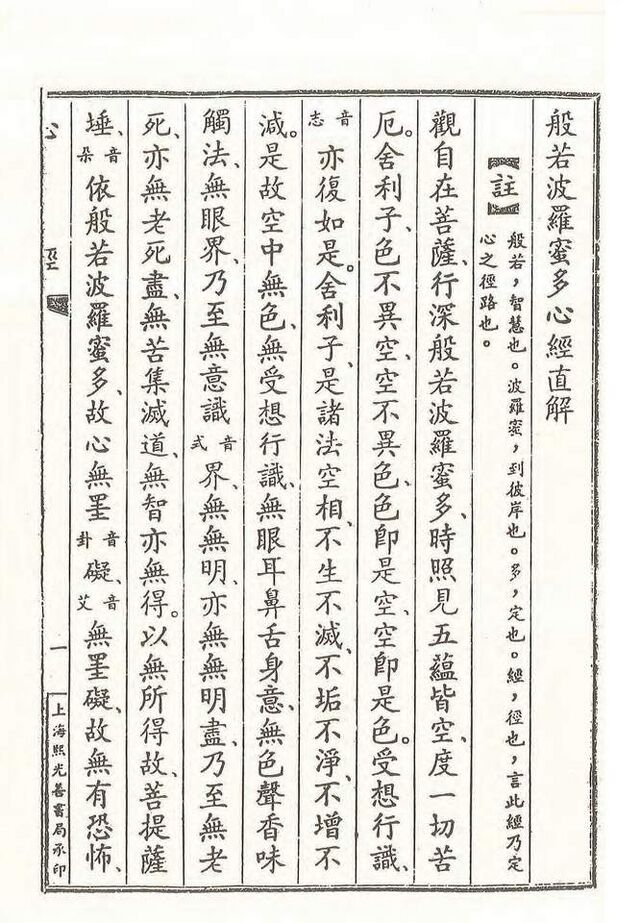 般若波羅蜜多心經直解
【註】般若,智慧也。波羅蜜,到彼岸也。多,定也。經,徑也,言此經乃定
心之徑路也。
觀自在菩薩、行深般若波羅蜜多、時照見五蘊皆空、度一切苦
厄。舍利子、色不異空、空不異色、色卽是空、空卽是色。受想行識、
音志亦復如是。舍利子、是諸法空相、不生不滅、不垢不淨、不增不
減。是故空中無色、無受想行識、無眼耳鼻舌身意、無色聲香味
觸法、無眼界、乃至無意識音式界、無無明、亦無無明盡、乃至無老
死、亦無老死盡、無苦集滅道、無智亦無得。以無所得故、菩提薩
埵、音朵依般若波羅蜜多、故心無罣音卦礙、音艾無罣礙、故無有恐怖、
心 經 一 上海熙光善書局承印